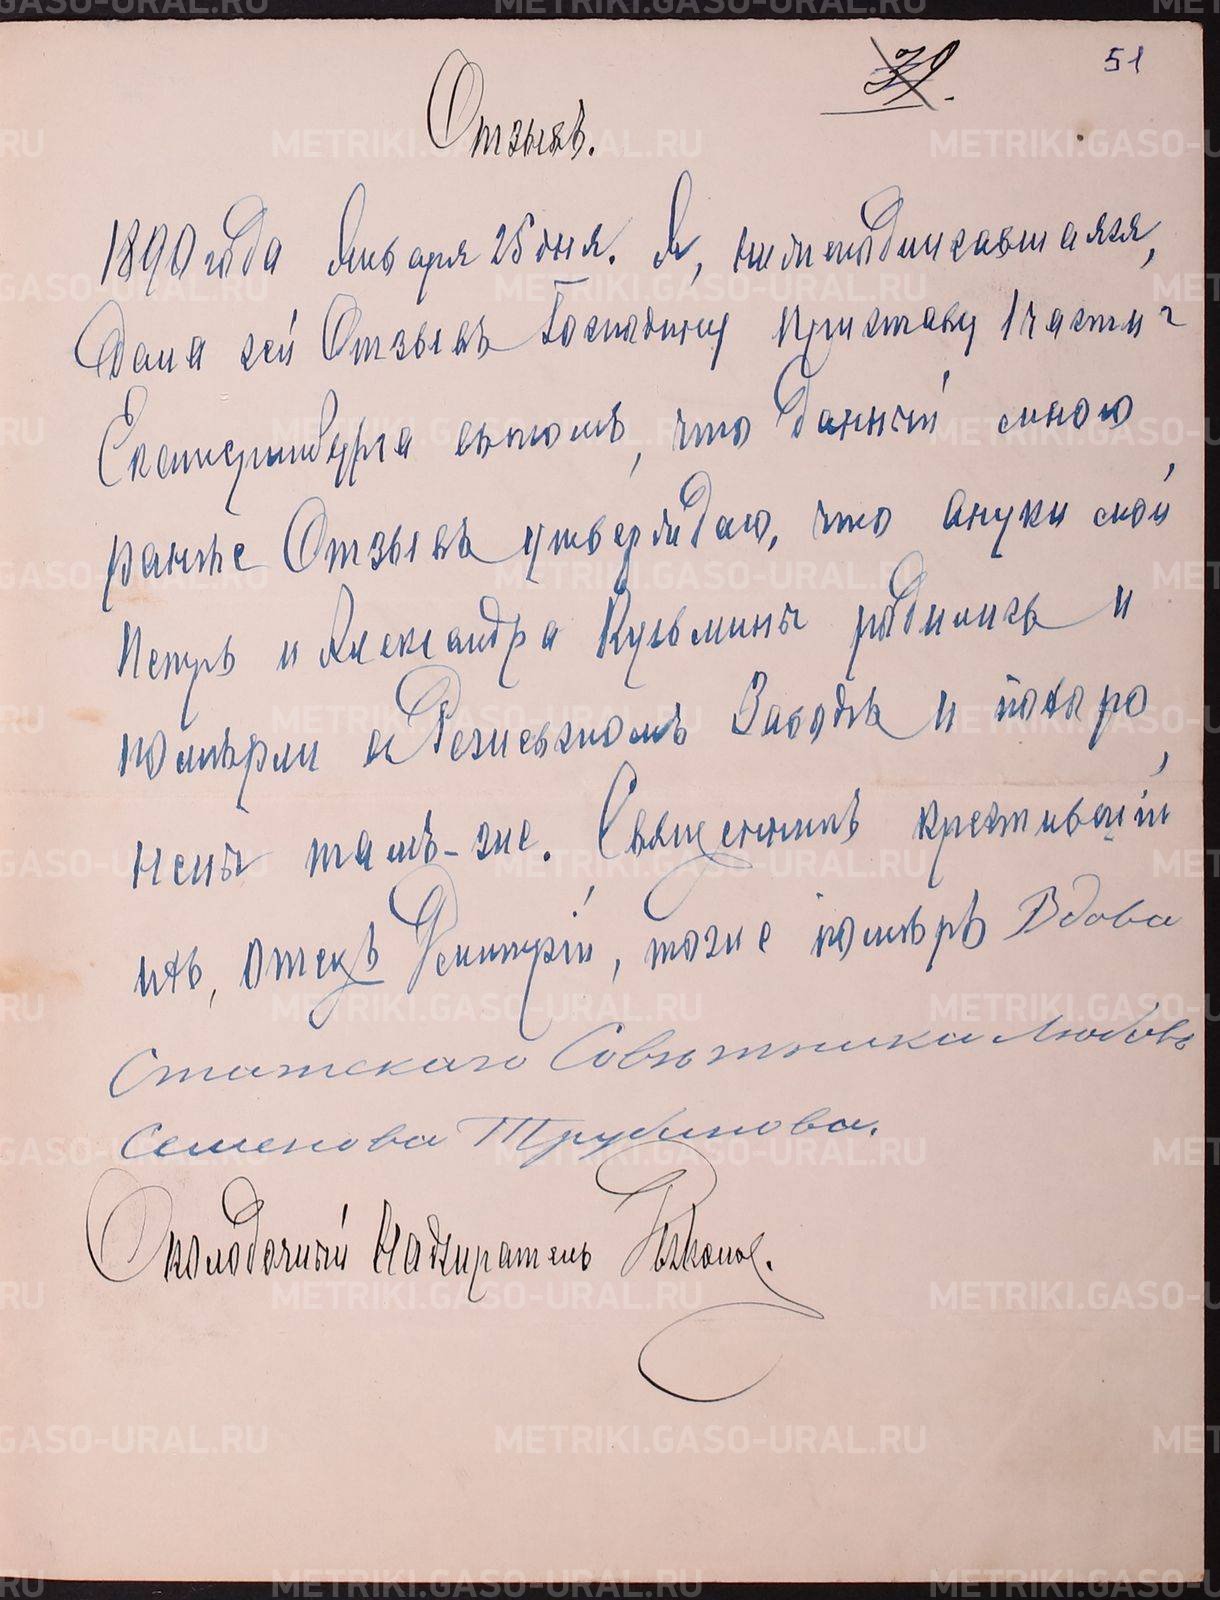 51
39.
Отзывъ.
1890 года Января 25 дня. Я, нижеподписавшаяся,
дала сей Отзывъ Господину Приставу 1 части г
Екатеринбурга въ томъ, что данный мною
ранѣе Отзывъ утверждаю, что внуки мои
Петръ и Александра Кузьмины родились и
померли въ Режевскомъ Заводѣ и похоро
нены тамъ-же. Священникъ крестивший
ихъ, отецъ Дмитрій, тоже померъ Вдова
Статскаго Совѣтника Любовь
Семенова Трубинова.
Околодочный Надзиратель
METRIKI.GASO-URAL.RU